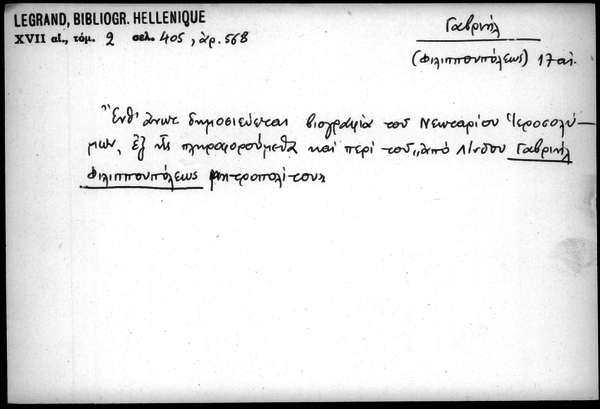 LEGRAND, BIBLIOGR. HELLENIQUE
XVII αἰ., τόμ. 2 σελ. 405, ἀρ. 568
Γαβριήλ
(Φιλιππουπόλεως) 17 αἰ.
Ἔνθ' ἄνωτ δημοσιεύεται βιογραφία τοῦ Νεκταρίου Ἱεροσολύ-
μων, ἐξ ἧς πληροφορούμεθα καὶ περὶ τοῦ „ἀπὸ Λίνδου Γαβριὴλ
Φιλιππουπόλεως μητροπολίτου"